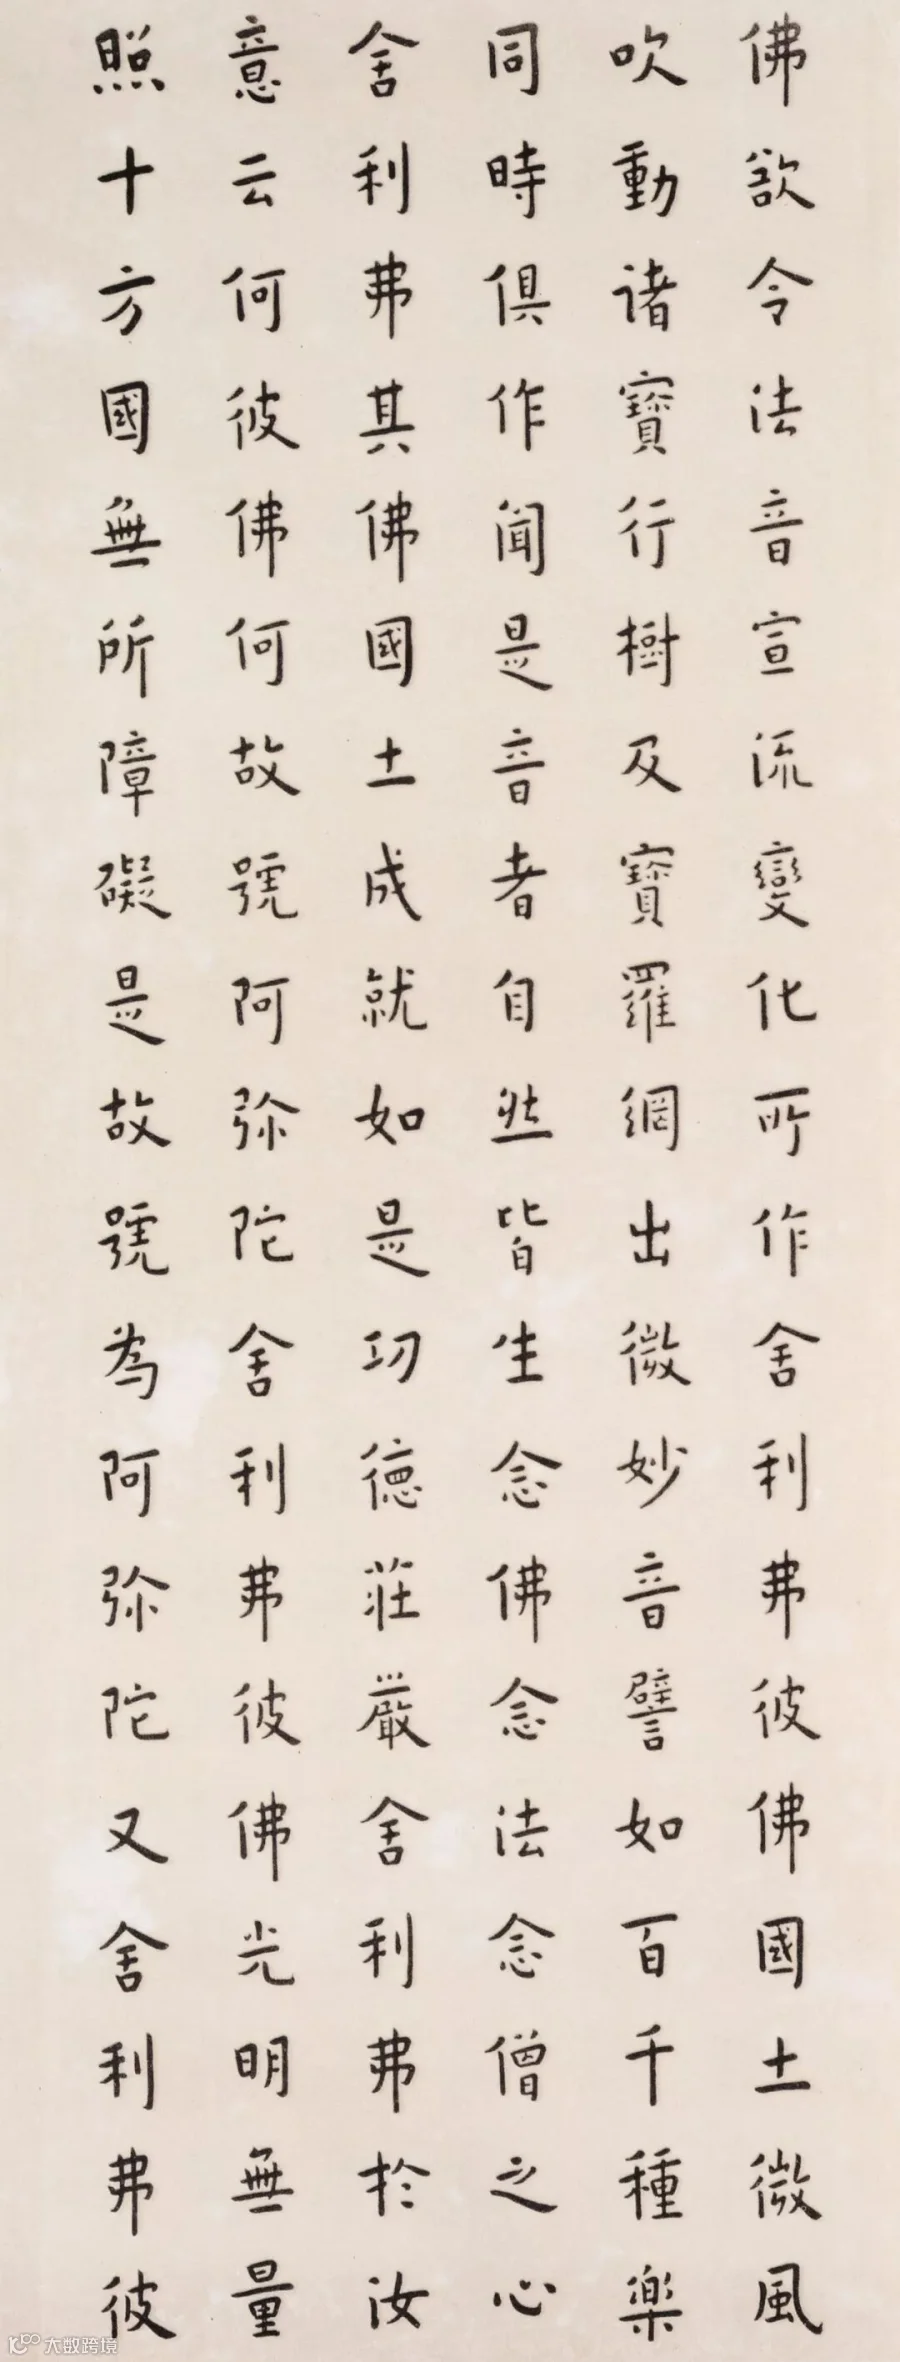 佛欲令法音宣流變化所作舍利弗彼佛國土微風
吹動諸寶行樹及寶羅網出微妙音譬如百千種樂
同時俱作聞是音者自然皆生念佛念法念僧之心
舍利弗其佛國土成就如是功德莊嚴舍利弗於汝
意云何彼佛何故號阿弥陀舍利弗彼佛光明無量
照十方國無所障礙是故號為阿弥陀又舍利弗彼
大数跨境